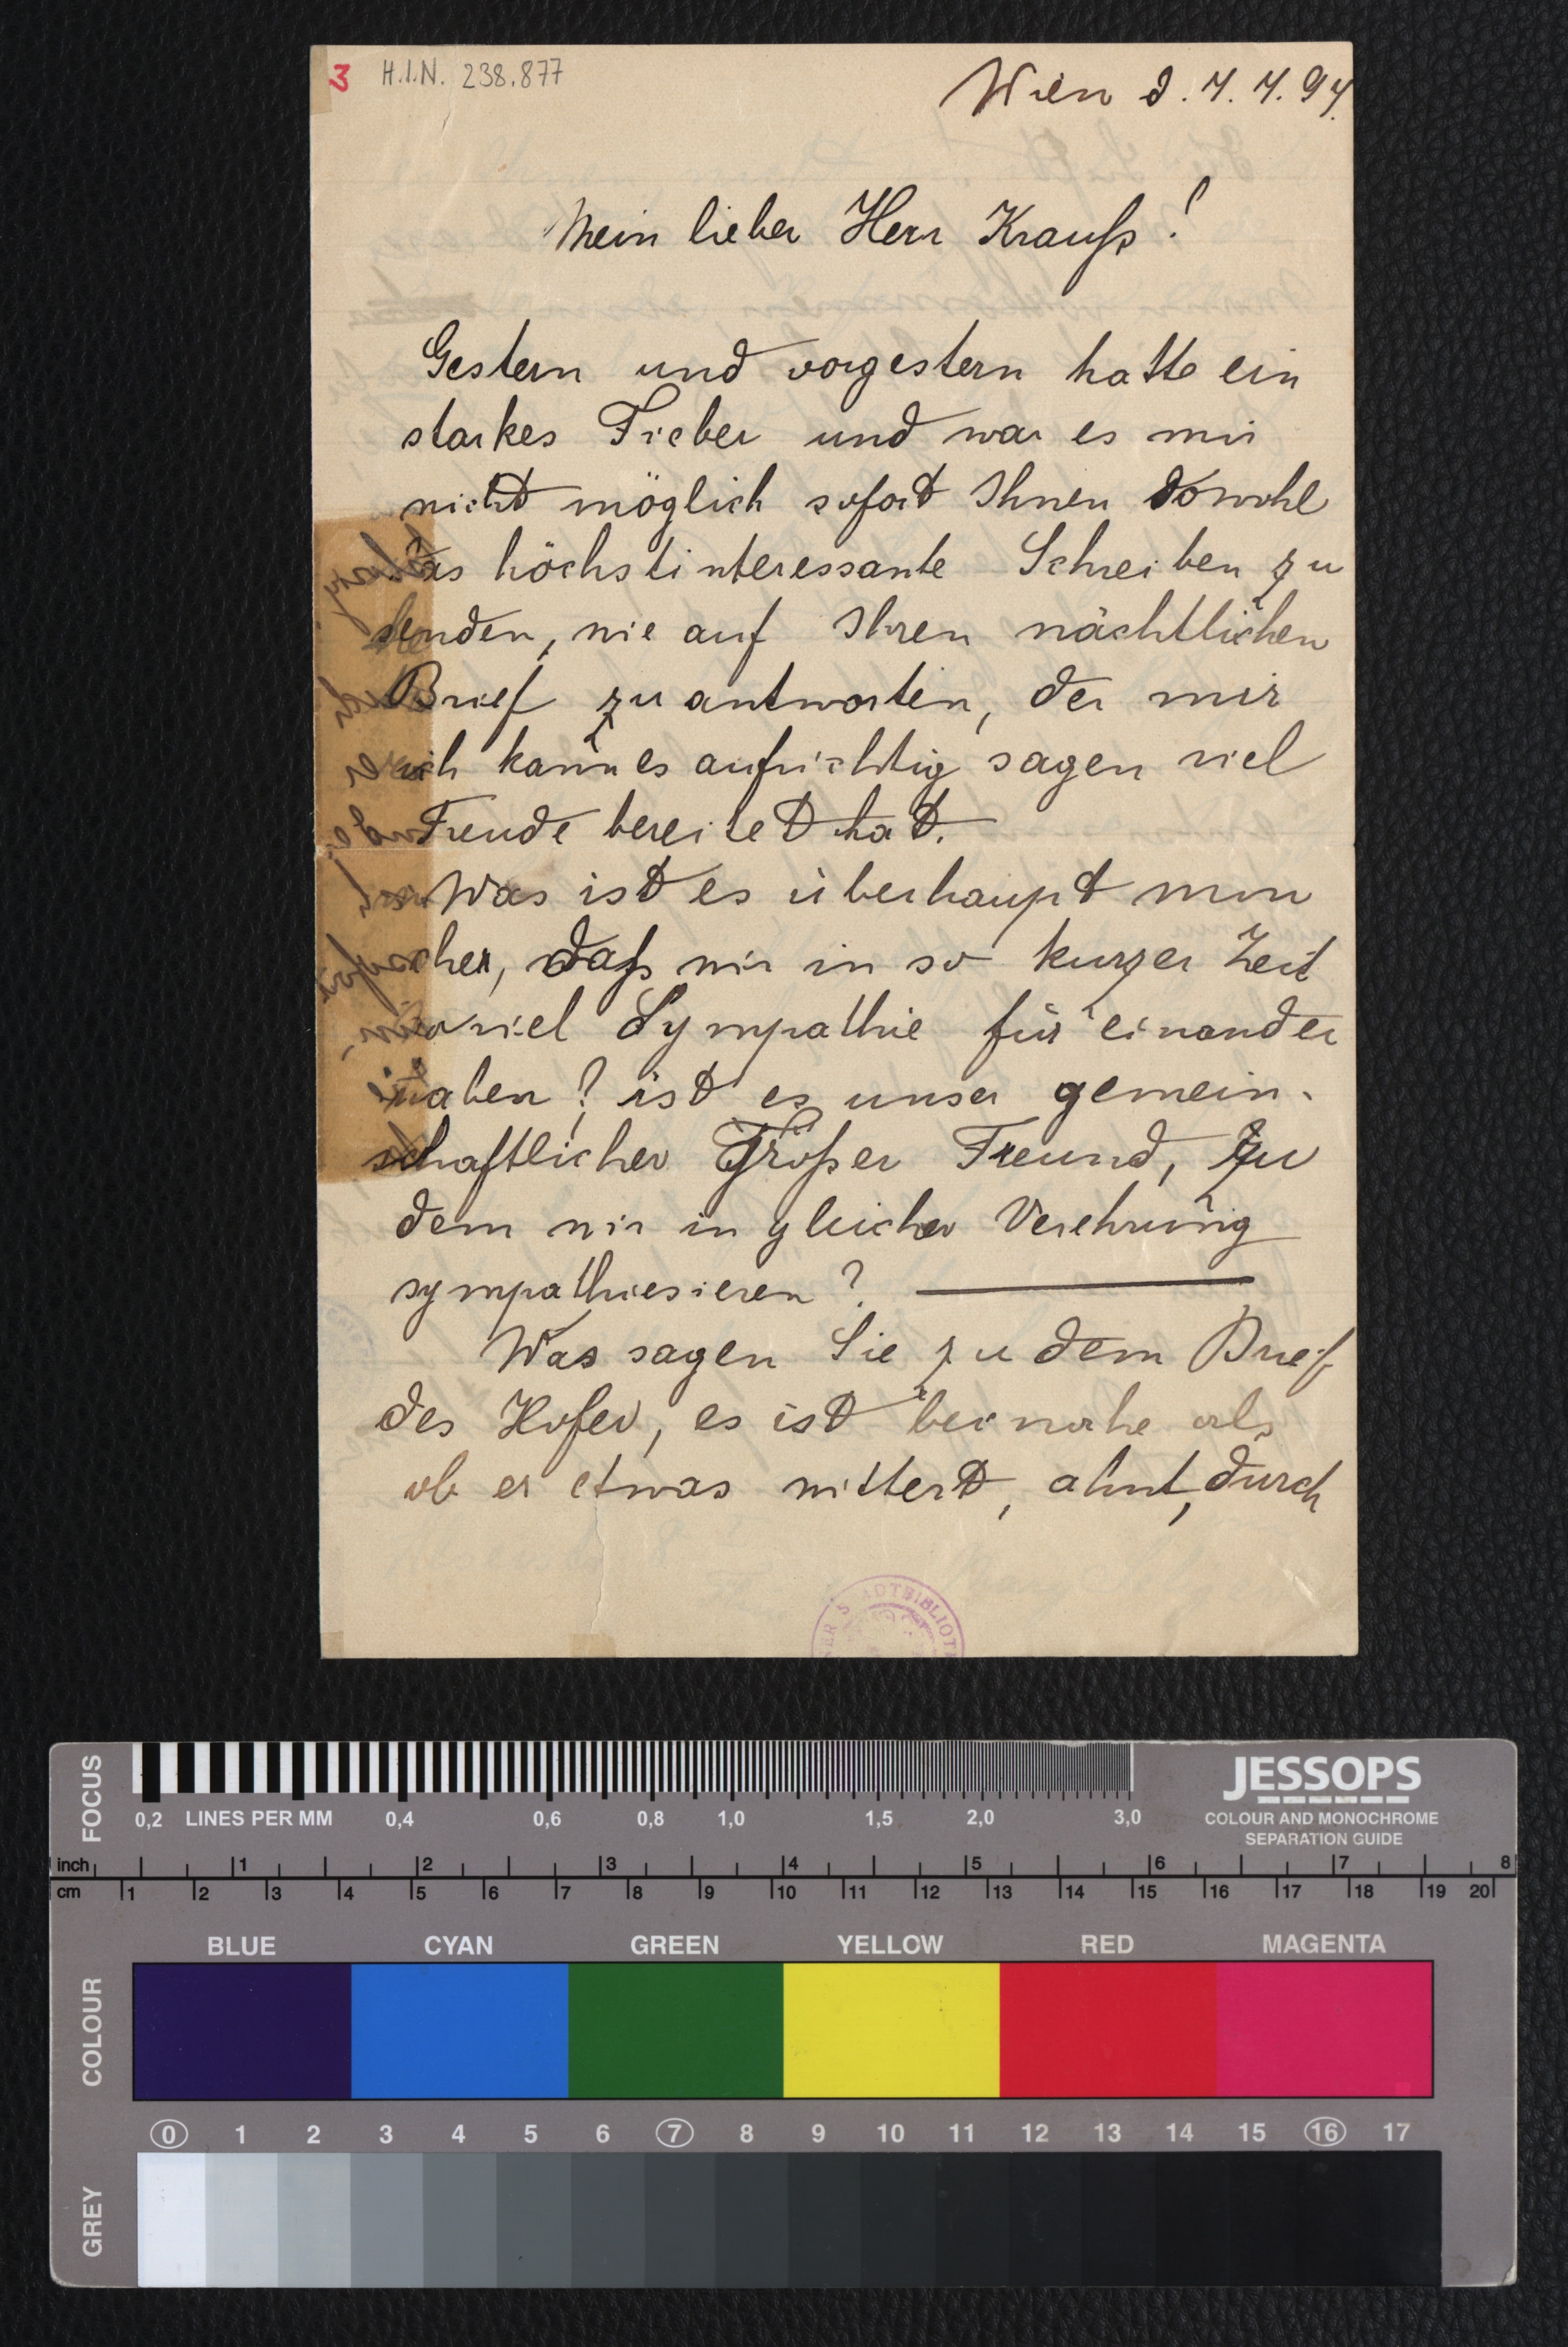 3 H.I.N. 238.877
Wien d. 7. 7. 94.
Mein lieber Herr Krauſs!
Gestern und vorgestern hatte ein
starkes Fieber und war es mir
nicht möglich sofort Ihnen sowohl
das höchstinteressante Schreiben zu
senden, wie auf Ihren nächtlichen
Brief zu antworten, der mir
ich kann es aufrichtig sagen viel
Freude bereitet hat.
Was ist es überhaupt mm
cher, daſs wir in so kurzer Zeit
so viel Sympathie für einander
haben? ist es unser gemein-
schaftlicher Groſser Freund, zu
dem wir in gleicher Verehrung
sympathiesieren? —
Was sagen Sie zu dem Brief
des Hofer, es ist beinahe als
ob er etwas wittert, ahnt, durch
FOCUS
0,2 LINES PER MM 0,4 0,6 0,8 1,0 1,5 2,0 3,0
JESSOPS
COLOUR AND MONOCHROME
SEPARATION GUIDE
inch 1 2 3 4 5 6 7 8
cm 1 2 3 4 5 6 7 8 9 10 11 12 13 14 15 16 17 18 19 20
COLOUR
BLUE CYAN GREEN YELLOW RED MAGENTA
0 1 2 3 4 5 6 7 8 9 10 11 12 13 14 15 16 17
GREY